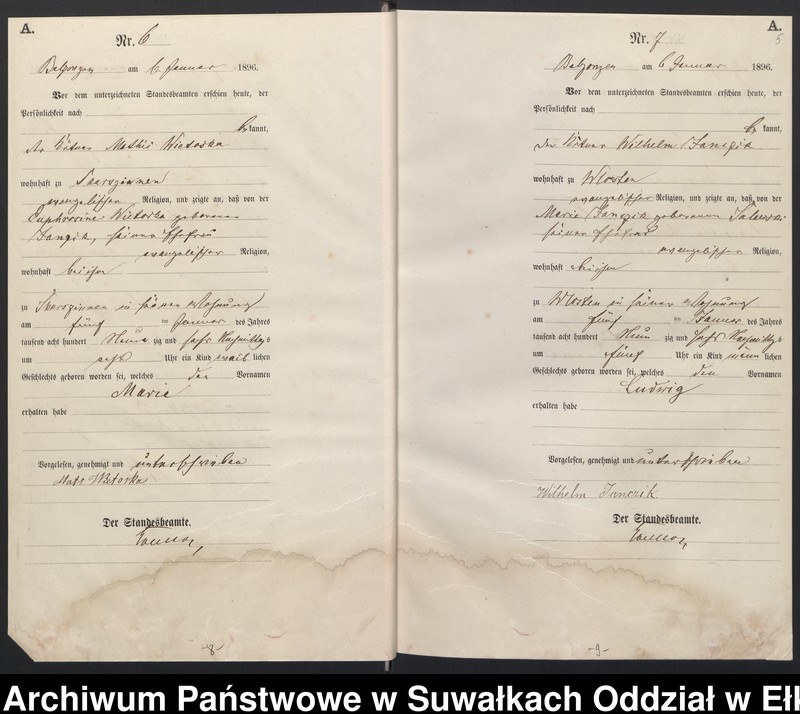 A.
Nr. 6
am 6 Januar 1896.
Vor dem unterzeichneten Standesbeamten erschien heute, der
Persönlichkeit nach
be kannt,
der Kätner Mathis Wietoska
wohnhaft zu
evangelischer Religion, und zeigte an, daß von der
geborenen
seiner Ehefrau
evangelischer Religion,
wohnhaft bei ihm
zu in seiner Wohnung
am fünf ten Januar des Jahres
tausend acht hundert Neun zig und sechs Nachmittags
um acht Uhr ein Kind weib lichen
Geschlechts geboren worden sei, welches den Vornamen
Marie
erhalten habe
Vorgelesen, genehmigt und unterschrieben
Der Standesbeamte.
-8-
A.
5
Nr. 7
am 6 Januar 1896.
Vor dem unterzeichneten Standesbeamten erschien heute, der
Persönlichkeit nach
be kannt,
der Kätner Wilhelm Janczik
wohnhaft zu Wlosten
evangelischer Religion, und zeigte an, daß von der
Marie Janczik geborenen
seiner Ehefrau
evangelischer Religion,
wohnhaft bei ihm
zu Wlosten in seiner Wohnung
am fünf ten Januar des Jahres
tausend acht hundert Neun zig und sechs Nachmittags
um fünf Uhr ein Kind männ lichen
Geschlechts geboren worden sei, welches den Vornamen
Ludwig
erhalten habe
Vorgelesen, genehmigt und unterschrieben
Wilhelm Janczik
Der Standesbeamte.
-9-
Archiwum Państwowe w Suwałkach Oddział w Eł